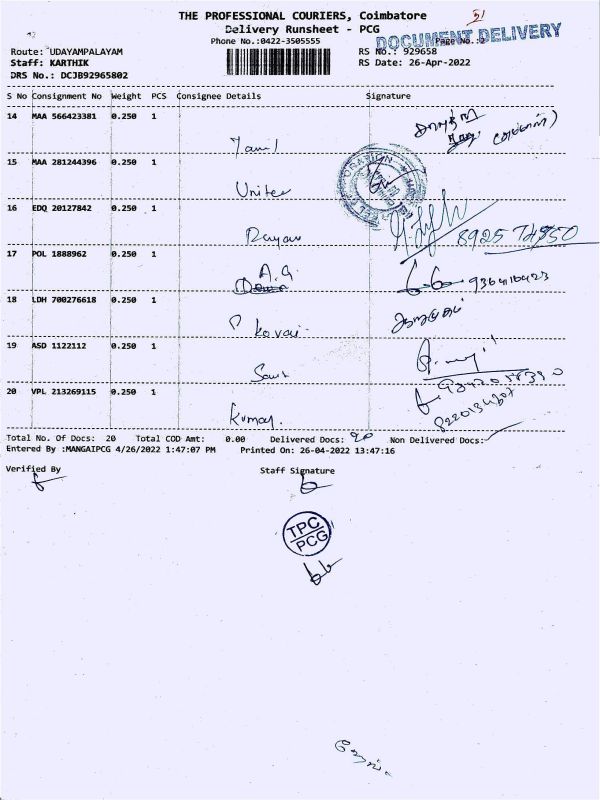 THE PROFESSIONAL COURIERS, Coimbatore
Delivery Runsheet - PCG
Phone No.:0422-3505555
51
DOCUMENT DELIVERY
Page No.:2
Route: UDAYAMPALAYAM
RS No.: 929658
Staff: KARTHIK
RS Date: 26-Apr-2022
DRS No.: DCJB92965802
S No Consignment No Weight PCS Consignee Details Signature
14 MAA 566423381 0.250 1
Tamil
15 MAA 281244396 0.250 1
United
16 EDQ 20127842 0.250 1
17 POL 1888962 0.250 1
A.G.
9364116423
18 LDH 700276618 0.250 1
P kovai.
19 ASD 1122112 0.250 1
20 VPL 213269115 0.250 1
Kumar.
Total No. Of Docs: 20 Total COD Amt: 0.00 Delivered Docs: 20 Non Delivered Docs:
Entered By :MANGAIPCG 4/26/2022 1:47:07 PM Printed On: 26-04-2022 13:47:16
Verified By
Staff Signature
TPC
PCG